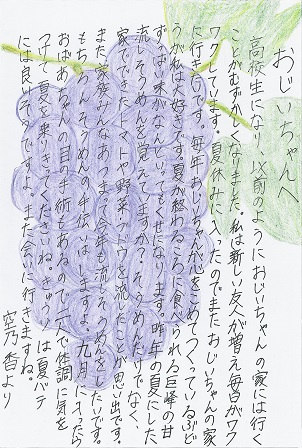 おじいちゃんへ
高校生になり、以前のようにおじいちゃんの家には行く
ことがむずかしくなりました。私は新しい友人が増え毎日がワク
ワクしています。夏休みに入ったのでまたおじいちゃんの家
に行きたいです。毎年おじいちゃんが心をこめてつくっているぶど
うが私は大好きです。夏が終わるころに食べられる巨峰の甘
ずっぱい味がなんといってもくせになります。昨年の夏にした
流しそうめんを覚えてますか?そうめんだけでなく、
家でできたトマトや野菜、ブドウを流したことが思い出です。
また家族みんなあつまって今年も流しそうめんをしたいです。
もちろんそうめんの手伝いはしますよ。九月に入ったら
おばあちゃんの目の手術もあるので二人で体調に気を
つけて夏を乗りきってくださいね。きゅうりは夏バテ
には良いそうですよ。また会いに行きますね。
空乃香より